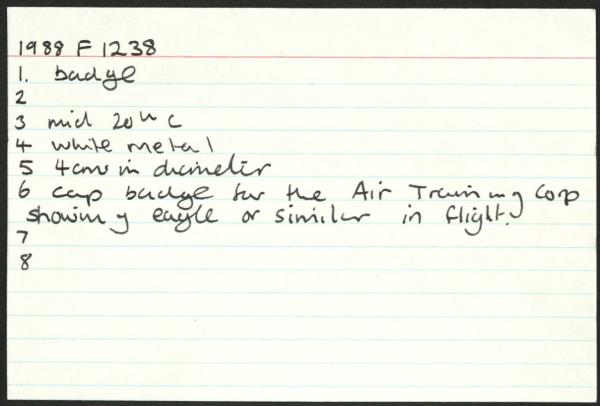 1988 F 1238
1. badge
2
3 mid 20th C
4 white metal
5 4cms in diameter
6 cap badge for the Air Training Corp
showing eagle or similar in flight.
7
8